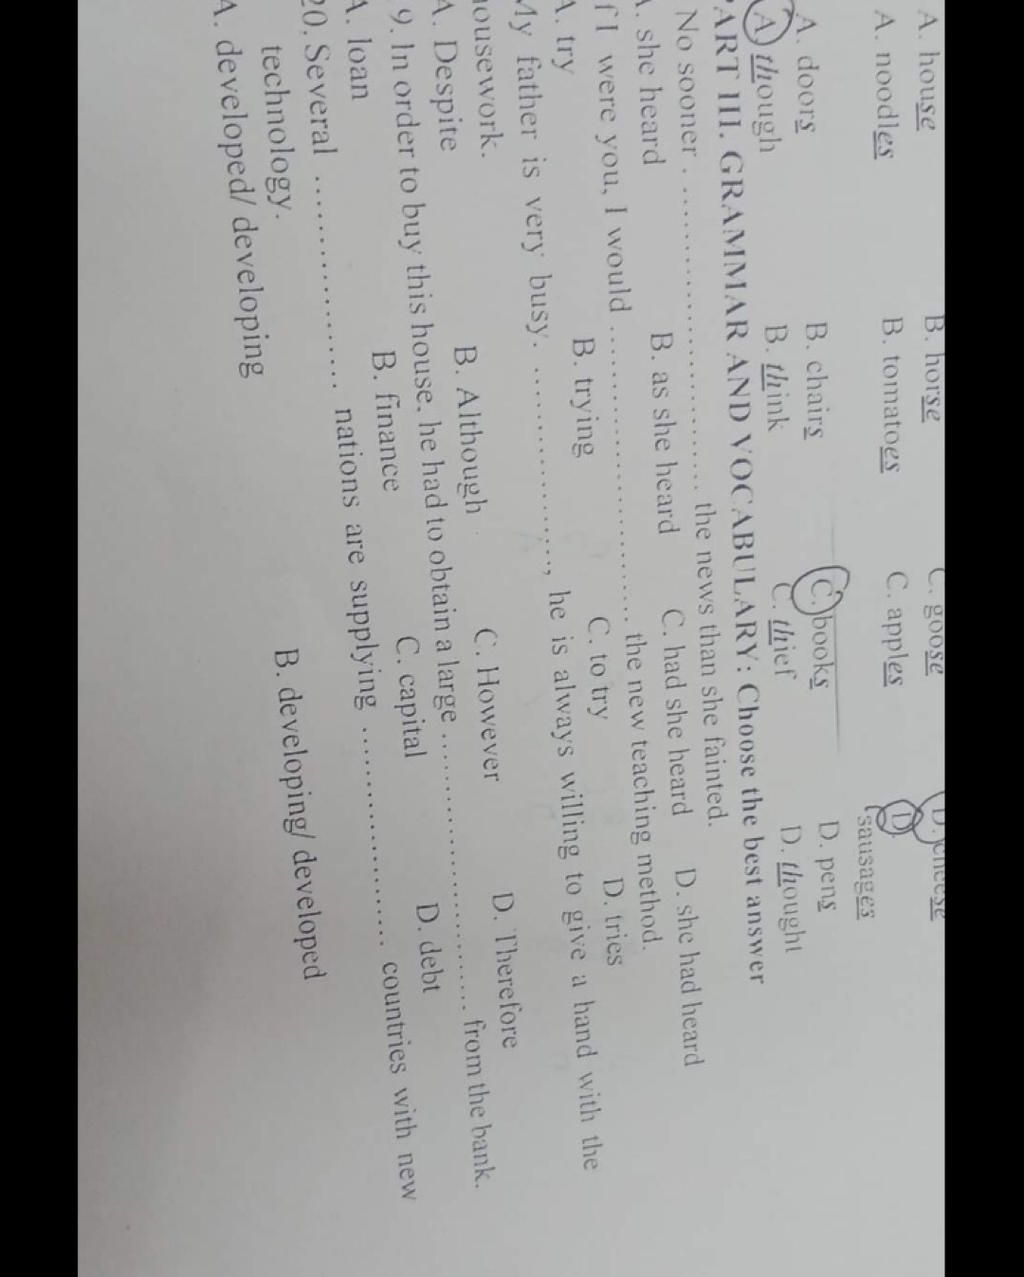 A. house B. horse C. goose D. cheese
A. noodles B. tomatoes C. apples D.
sausages
A. doors B. chairs C. books D. pens
A. though B. think C. thief D. thought
PART III. GRAMMAR AND VOCABULARY: Choose the best answer
No sooner ........................ the news than she fainted.
A. she heard B. as she heard C. had she heard D. she had heard
f I were you, I would ........................ the new teaching method.
A. try B. trying C. to try D. tries
My father is very busy. ................, he is always willing to give a hand with the
housework.
A. Despite B. Although C. However D. Therefore
9. In order to buy this house, he had to obtain a large ........................ from the bank.
A. loan B. finance C. capital D. debt
20. Several ................ nations are supplying ................ countries with new
technology.
A. developed/ developing B. developing/ developed